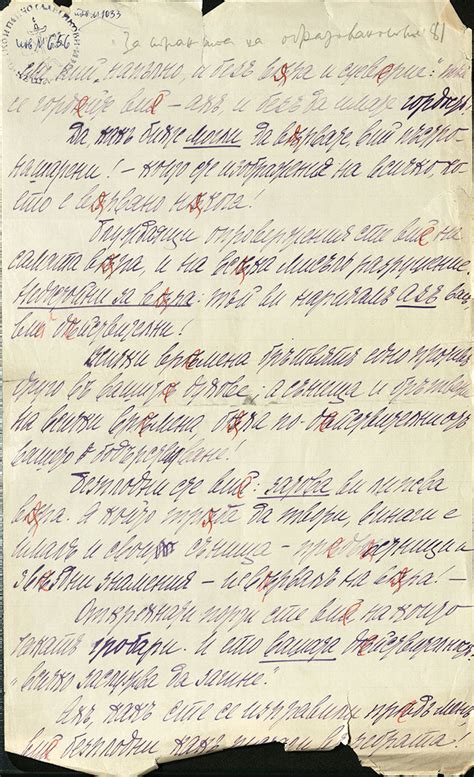 инв.№ 1033
инв.№ 656
За страната на образованието 81
ний напълно, и безъ вяра и суеверие": така
се гордеете вий — ахъ, и безъ да имате гърди!
Да какъ бихте могли да вярвате, вий пъстро-
нашарени! — които сте изображения на всичко, ко-
ето е вярвано някога!
Блуждаящи опровержения сте вий на
самата вяра, и на всяка мисъль разрушение.
за вяра: тъй ви наричамъ азъ вас
вий действителни!
Всички времена брътвятъ едно против
друго въ вашите духове: а сънища и брътвежи
на всички времена, бяха по-действителни отъ
вашето бодърствуване!
Безплодни сте вий: затова ви липсва
вяра. А който трябва да твори, винаги е
ималъ и свои сънища — предвестници и
звездни знамения — и е вярвалъ на вяра! —
Открехнати порти сте вий на които
чакатъ гробари. И ето вашата действителность:
"всичко заслужва да загине."
Ахъ, какъ сте се изправили предъ мене
вий безплодни какъ ребрата!